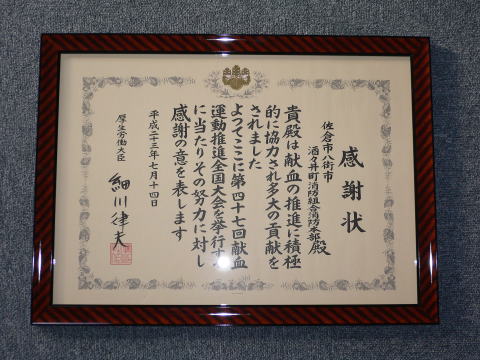 感謝状
佐倉市八街市
酒々井町消防組合消防本部殿
貴殿は献血の推進に積極
的に協力され多大の貢献を
されました
よってここに第四十七回献血
運動推進全国大会を挙行す
に当たりその努力に対し
感謝の意を表します
平成二十三年七月十四日
厚生労働大臣
細川律夫